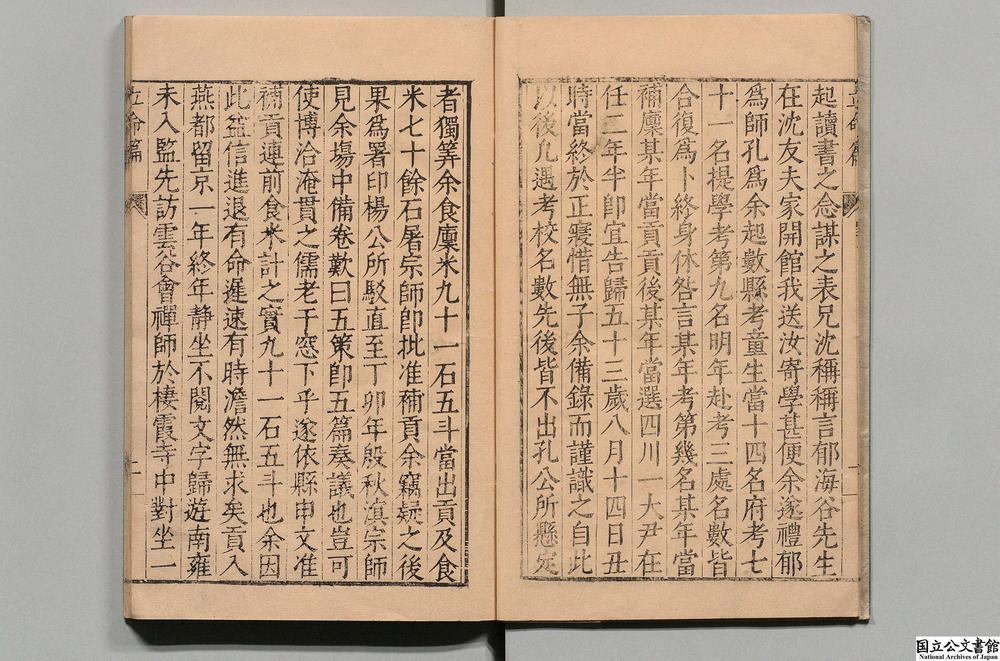 起讀書之念謀之表兄沈稱稱言郁海谷先生
在沈友夫家開館我送汝寄學甚便余遂禮郁
爲師孔爲余起數縣考童生當十四名府考七
十一名提學考第九名明年赴考三處名數皆
合復爲卜終身休咎言某年考第幾名某年當
補廩某年當貢貢後某年當選四川一大尹在
任三年半卽宜告歸五十三歲八月十四日丑
時當終於正寢惜無子余備錄而謹識之自此
以後凡遇考校名數先後皆不出孔公所懸定
者獨筭余食廩米九十一石五斗當出貢及食
米七十餘石屠宗師卽批准補貢余竊疑之後
果爲署印楊公所駁直至丁卯年殷秋溟宗師
見余場中備卷歎曰五策卽五篇奏議也豈可
使博洽淹貫之儒老于窓下乎遂依縣申文准
補貢連前食米計之實九十一石五斗也余因
此益信進退有命遲速有時澹然無求矣貢入
燕都留京一年終年靜坐不閱文字歸遊南雍
未入監先訪雲谷會禪師於棲霞寺中對坐一
立命篇
国立公文書館
National Archives of Japan